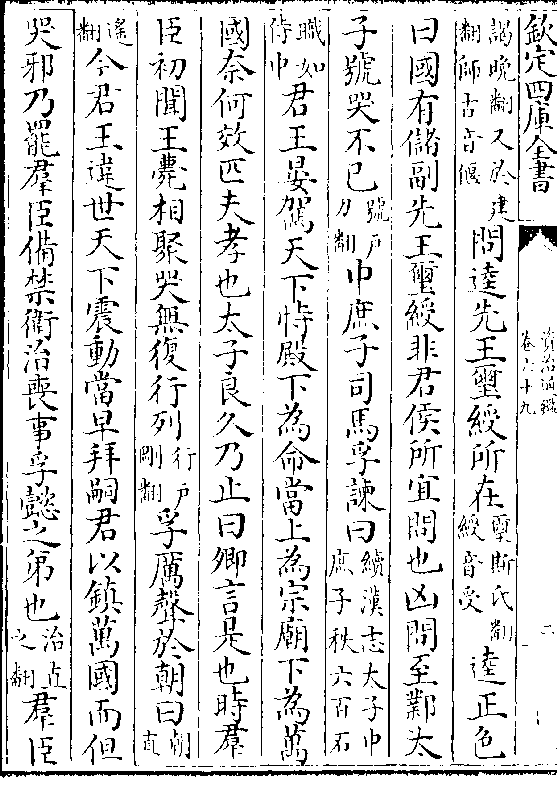 欽定四庫全書
資治通鑑
卷六十九
二
謁晚翻又於建翻師古音偃問逵先王璽綬所在璽斯氏翻綬音受逵正色
曰國有儲副先王璽綬非君侯所宜問也凶問至鄴太
子號哭不已號戶刀翻中庶子司馬孚諫曰續漢志太子中庶子秩六百石
職如侍中君王晏駕天下恃殿下為命當上為宗廟下為萬
國奈何效匹夫孝也太子良久乃止曰卿言是也時羣
臣初聞王薨相聚哭無復行列行戶剛翻孚厲聲於朝曰朝直
遙翻今君王違世天下震動當早拜嗣君以鎮萬國而但
哭邪乃罷羣臣備禁衛治喪事孚懿之弟也治直之翻羣臣